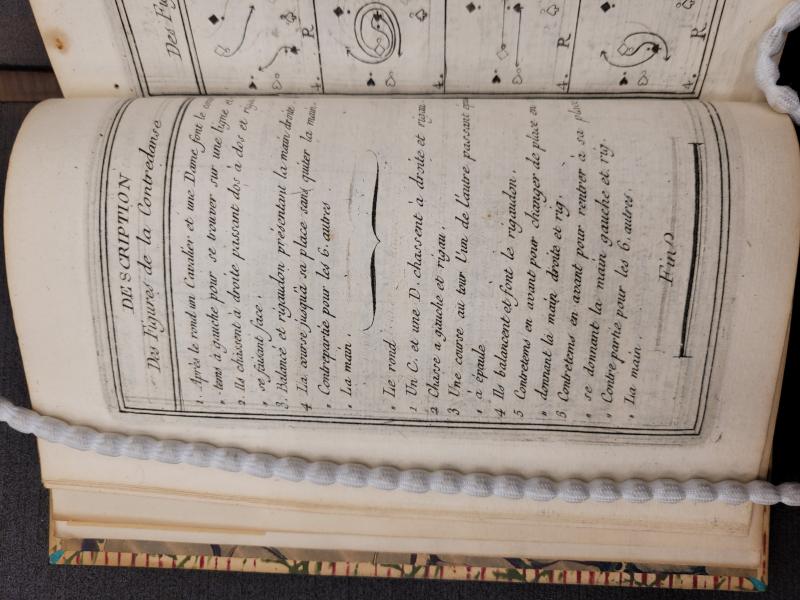 Des Fig
4. R
4.
4. R
4. R
DESCRIPTION
Des Figures de la Contredanse
1. Après le rond un Cavalier et une Dame font le
" tems à gauche pour se trouver sur une ligne
2. Ils chassent à droite passant dos à dos et
" se faisant face.
3. Balancé et rigaudon présentant la main droite
4 La course jusqu'à sa place sans quiter la main.
" Contrepartie pour les 6. autres
" La main.
" Le rond
1 Un C. et une D. chassent à droite et rigau
2 Chasse a gauche et rigau.
3 Une course au tour l'un de l'autre passant
" à épaule
4 Ils balancent et font le rigaudon.
5 Contretems en avant pour changer de place en
" donnant la main droite et rig.
6 Contretems en avant pour rentrer à sa place
" se donnant la main gauche et rig.
" Contre partie pour les 6. autres.
" La main.
Fin